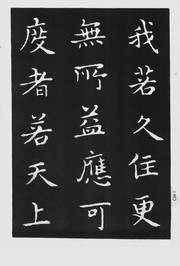 我若久住更
無所益應可
度者若天上